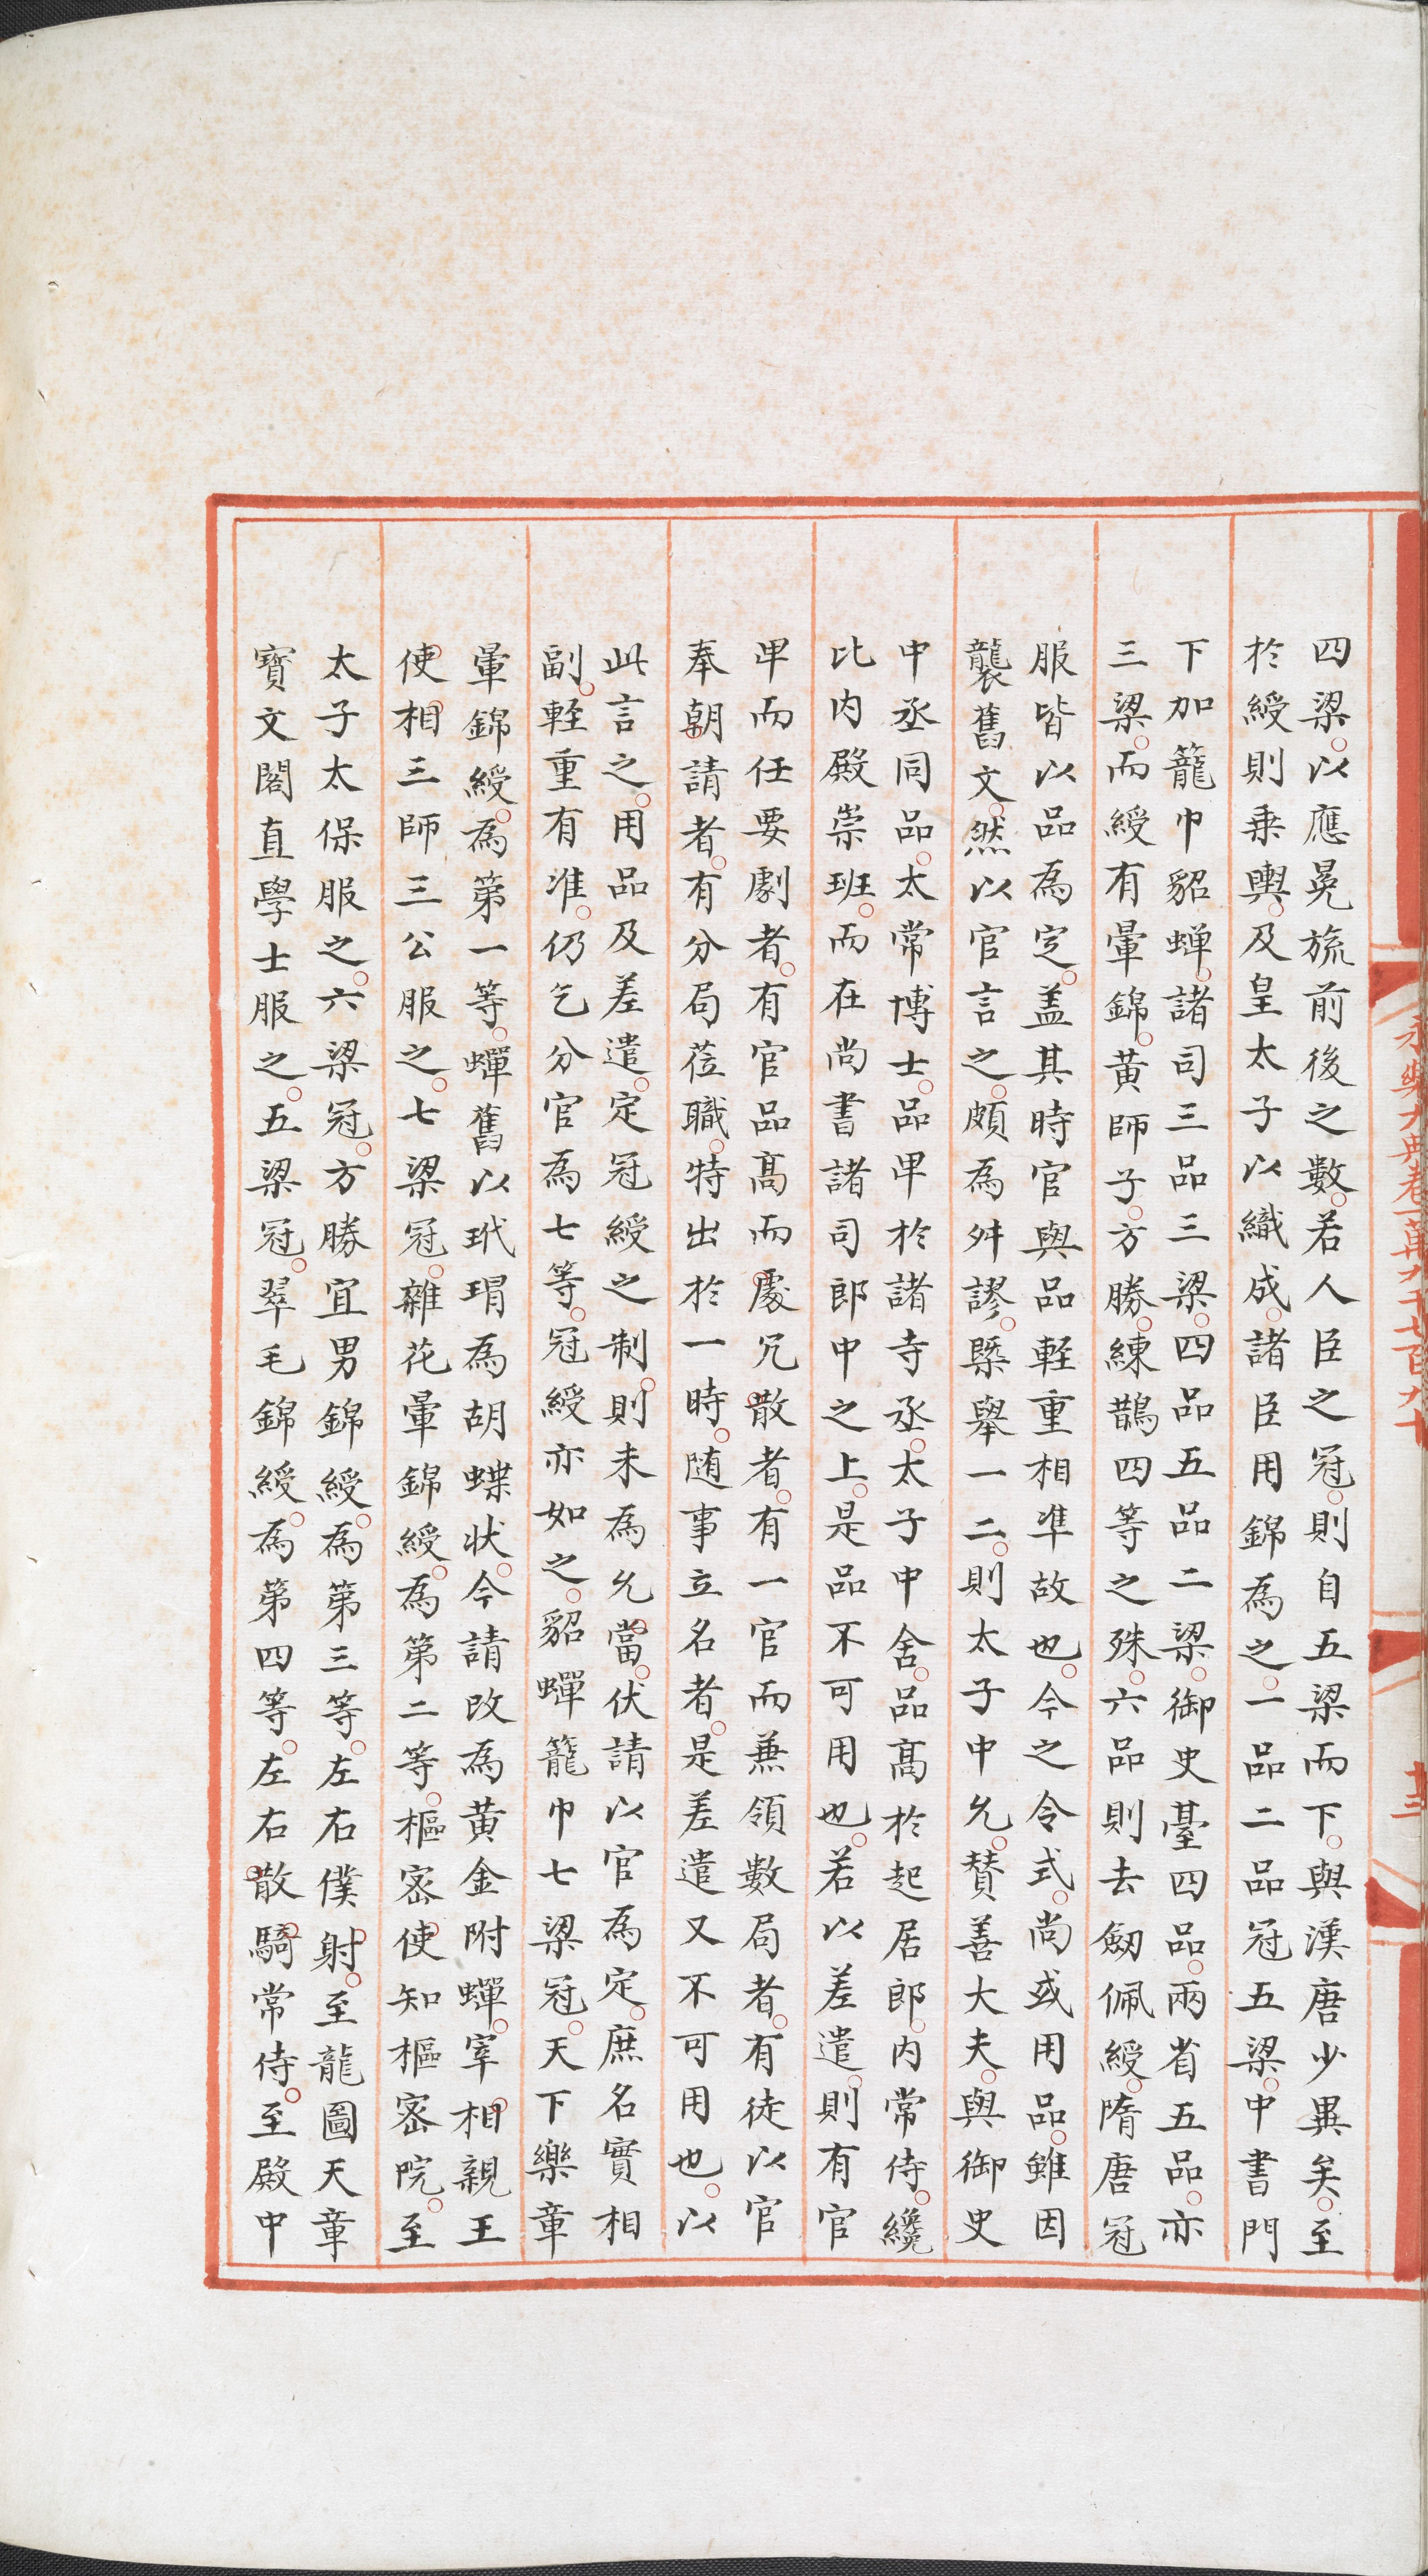 永樂大典卷一萬九千七百九十
十三
四梁以應冕旒前後之數若人臣之冠則自五梁而下與漢唐少異矣至
於綬則乗輿及皇太子以織成諸臣用錦為之一品二品冠五梁中書門
下加籠巾貂蟬諸司三品三梁四品五品二梁御史臺四品兩省五品亦
三梁而綬有暈錦黄師子方勝練鵲四等之殊六品則去劒佩綬隋唐冠
服皆以品為定盖其時官與品輕重相凖故也今之令式尚或用品雖因
襲舊文然以官言之頗為舛謬槩舉一二則太子中允賛善大夫與御史
中丞同品太常博士品卑於諸寺丞太子中舍品髙於起居郎内常侍纔
比内殿崇班而在尚書諸司郎中之上是品不可用也若以差遣則有官
卑而任要劇者有官品髙而處冗散者有一官而兼領數局者有徒以官
奉朝請者有分局莅職特出於一時随事立名者是差遣又不可用也以
此言之用品及差遣定冠綬之制則未為允當伏請以官為定庶名實相
副輕重有准仍乞分官為七等冠綬亦如之貂蟬籠巾七梁冠天下樂章
暈錦綬為第一等蟬舊以玳瑁為胡蝶状今請改為黄金附蟬宰相親王
使相三師三公服之七梁冠雜花暈錦綬為第二等樞宻使知樞宻院至
太子太保服之六梁冠方勝宜男錦綬為第三等左右僕射至龍圖天章
寳文閣直學士服之五梁冠翠毛錦綬為第四等左右散騎常侍至殿中